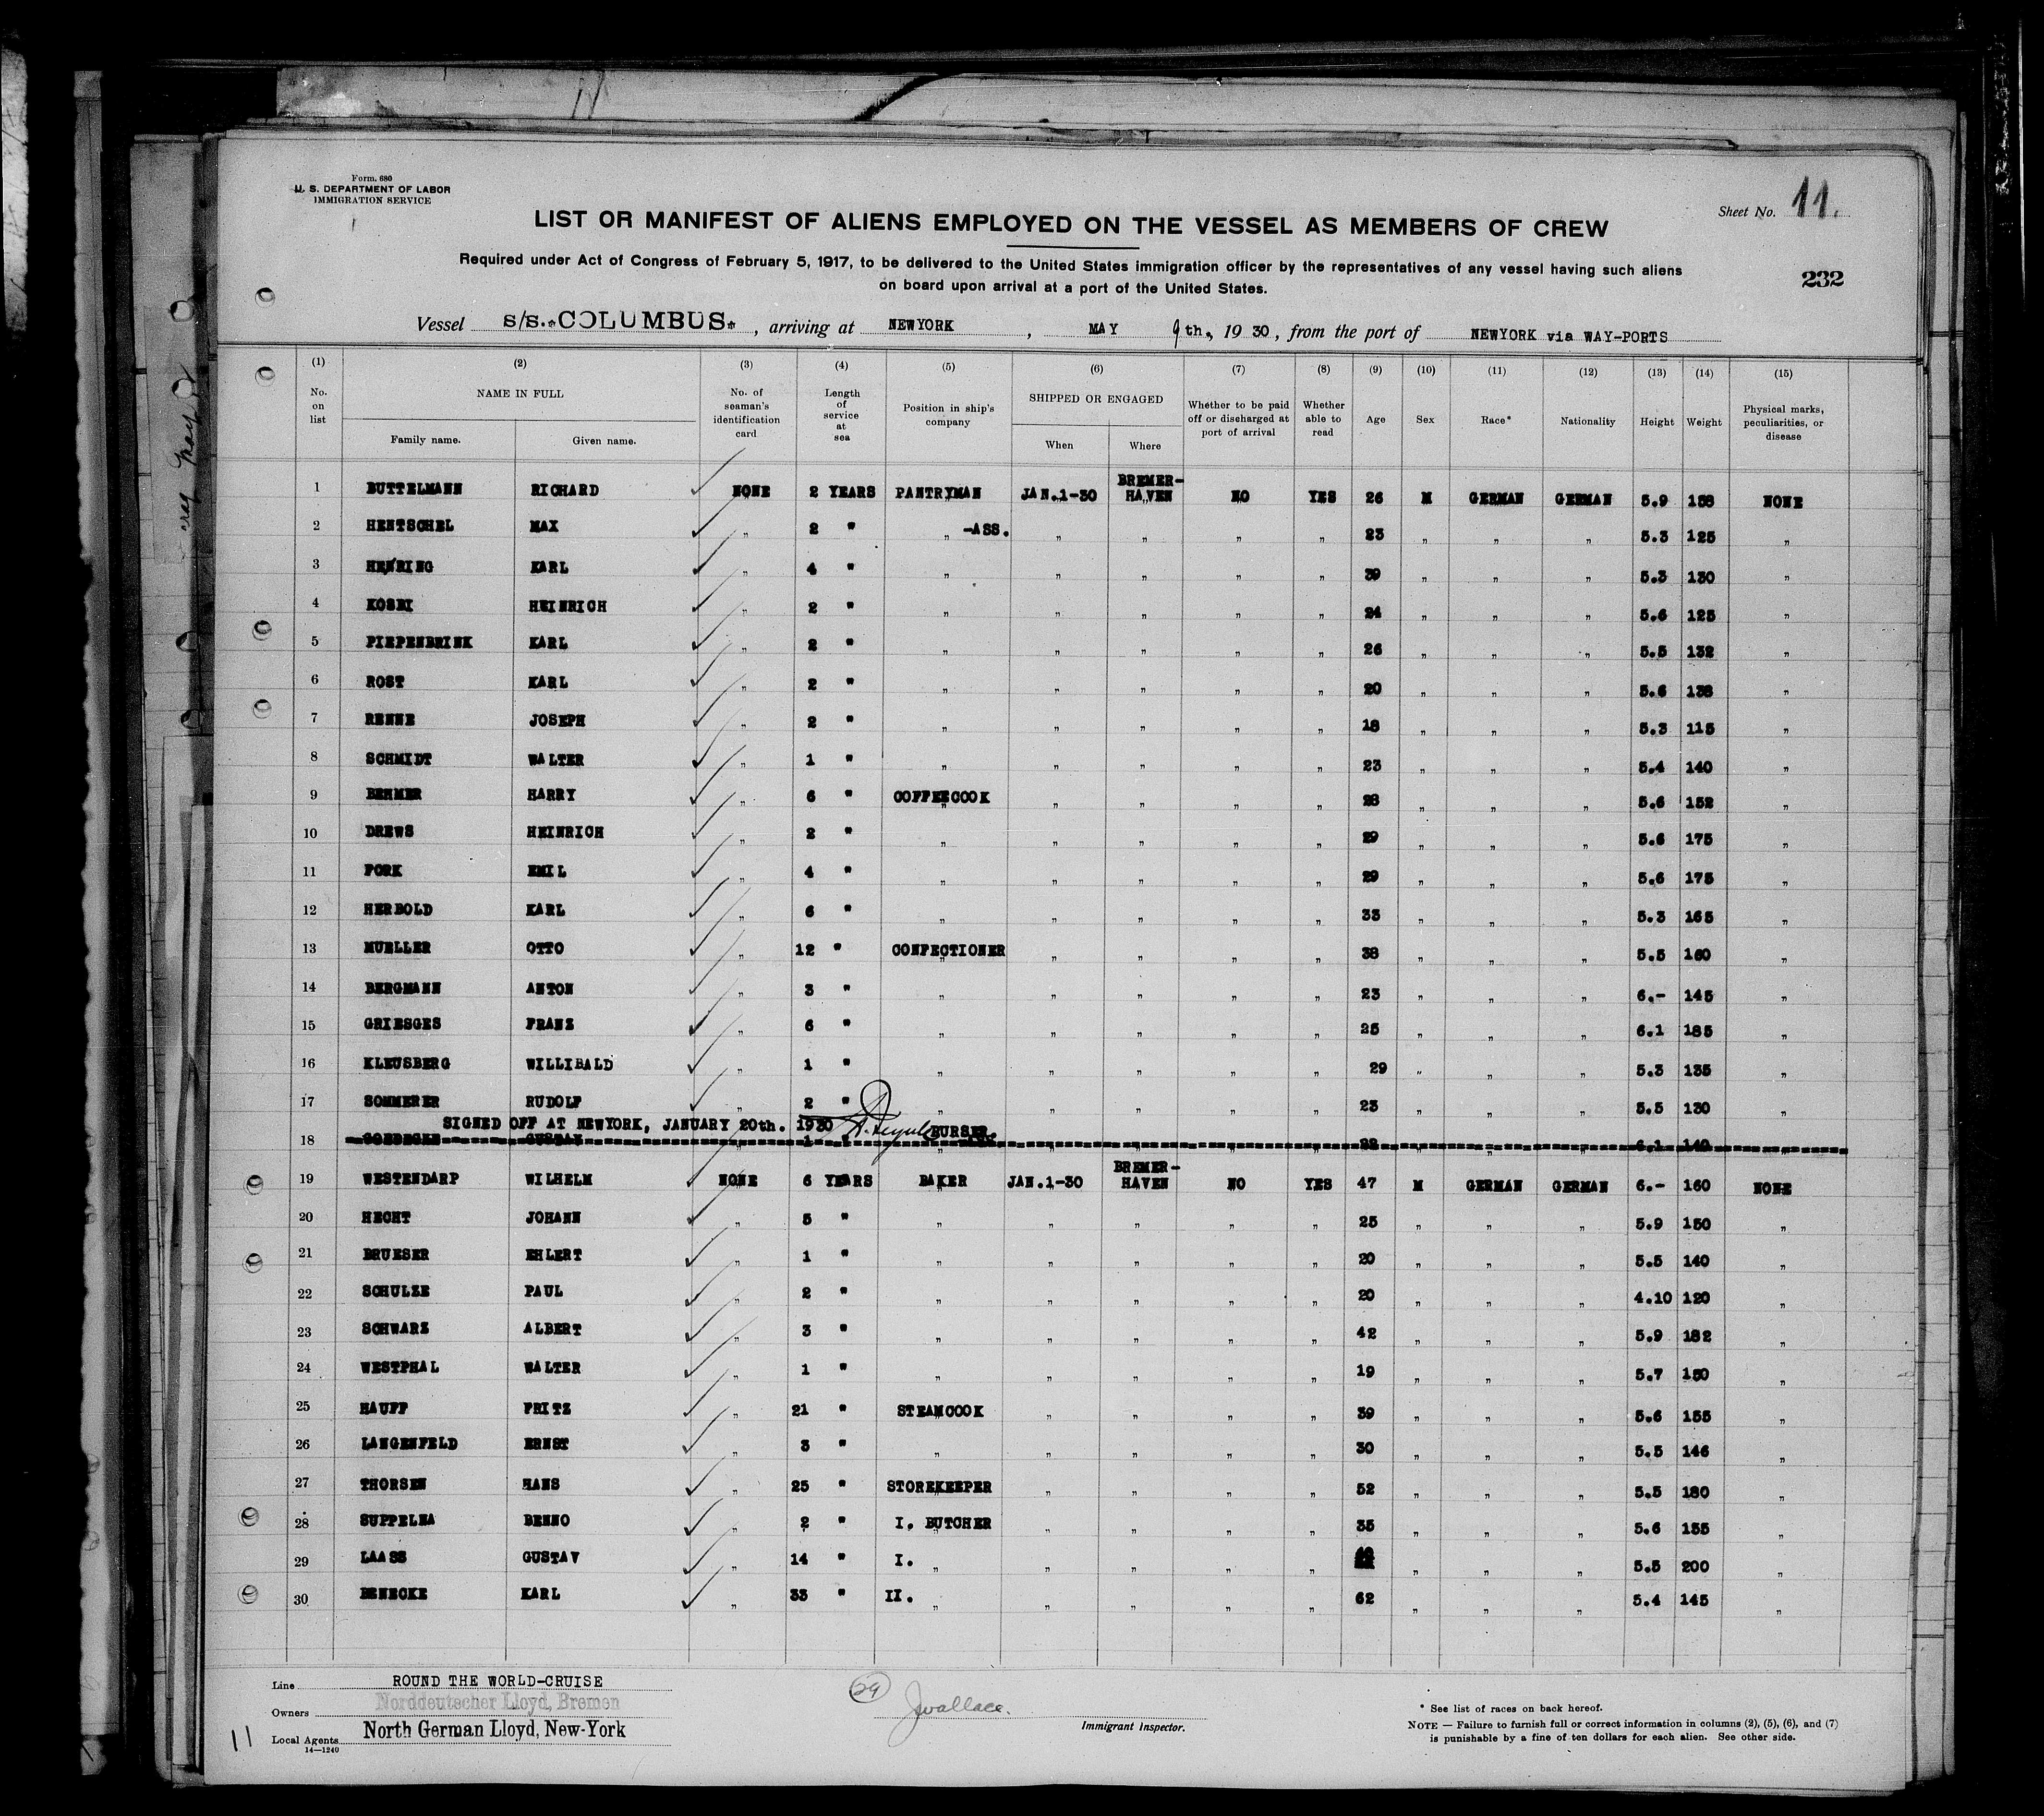 11
Form. 680
U. S. DEPARTMENT OF LABOR
IMMIGRATION SERVICE
Sheet No. 11.
LIST OR MANIFEST OF ALIENS EMPLOYED ON THE VESSEL AS MEMBERS OF CREW
Required under Act of Congress of February 5, 1917, to be delivered to the United States immigration officer by the representatives of any vessel having such aliens
on board upon arrival at a port of the United States.
232
Vessel s/s.*COLUMBUS*, arriving at NEWYORK, MAY 9th., 1930, from the port of NEWYORK via WAY-PORTS
(1) (2) (3) (4) (5) (6) (7) (8) (9) (10) (11) (12) (13) (14) (15)
No. on list NAME IN FULL Family name. Given name. No. of seaman's identification card Length of service at sea Position in ship's company SHIPPED OR ENGAGED When Where Whether to be paid off or discharged at port of arrival Whether able to read Age Sex Race* Nationality Height Weight Physical marks, peculiarities, or disease
1 BUTTELMANN RICHARD NONE 2 YEARS PANTRYMAN JAN.1-30 BREMER-HAVEN NO YES 26 M GERMAN GERMAN 5.9 158 NONE
2 HENTSCHEL MAX " 2 " " -ASS. " " " " 23 " " " 5.3 125 "
3 HENRING KARL " 4 " " " " " " 39 " " " 5.3 130 "
4 KOSBI HEINRICH " 2 " " " " " " 24 " " " 5.6 125 "
5 PIEPENBRINK KARL " 2 " " " " " " 26 " " " 5.5 132 "
6 ROST KARL " 2 " " " " " " 20 " " " 5.6 138 "
7 RENNE JOSEPH " 2 " " " " " " 18 " " " 5.3 115 "
8 SCHMIDT WALTER " 1 " " " " " " 23 " " " 5.4 140 "
9 BEHMER HARRY " 6 " COFFEECOOK " " " " 28 " " " 5.6 152 "
10 DREWS HEINRICH " 2 " " " " " " 29 " " " 5.6 175 "
11 FORK EMIL " 4 " " " " " " 29 " " " 5.6 175 "
12 HERBOLD KARL " 6 " " " " " " 35 " " " 5.3 165 "
13 MUELLER OTTO " 12 " CONFECTIONER " " " " 38 " " " 5.5 160 "
14 BERGMANN ANTON " 3 " " " " " " 23 " " " 6.- 145 "
15 GRIESGES FRANZ " 6 " " " " " " 25 " " " 6.1 185 "
16 KLEUSBERG WILLIBALD " 1 " " " " " " 29 " " " 5.3 135 "
17 SOMMERER RUDOLF " 2 " " " " " " 23 " " " 5.5 130 "
SIGNED OFF AT NEWYORK, JANUARY 20th. 1930 PURSER.
18 GUSTAV 1 " " " " " " " " 6.1 140 "
19 WESTENDARP WILHELM NONE 6 YEARS BAKER JAN.1-30 BREMER-HAVEN NO YES 47 M GERMAN GERMAN 6.- 160 NONE
20 HECHT JOHANN " 5 " " " " " " 25 " " " 5.9 150 "
21 BRUESER EHLERT " 1 " " " " " " 20 " " " 5.5 140 "
22 SCHULZE PAUL " 2 " " " " " " 20 " " " 4.10 120 "
23 SCHWARZ ALBERT " 3 " " " " " " 42 " " " 5.9 182 "
24 WESTPHAL WALTER " 1 " " " " " " 19 " " " 5.7 150 "
25 HAUFF FRITZ " 21 " STEAMCOOK " " " " 39 " " " 5.6 155 "
26 LANGENFELD ERNST " 3 " " " " " " 30 " " " 5.5 146 "
27 THORSEN HANS " 25 " STOREKEEPER " " " " 52 " " " 5.5 180 "
28 SUPPELNA BENNO " 2 " I. BUTCHER " " " " 35 " " " 5.6 155 "
29 LAASS GUSTAV " 14 " I. " " " " " " " " 5.5 200 "
30 BENECKE KARL " 33 " II. " " " " " 62 " " " 5.4 145 "
Line ROUND THE WORLD-CRUISE
Norddeutscher Lloyd, Bremen
Owners
Local Agents North German Lloyd, New-York
14—1240
11
29
JWallace.
Immigrant Inspector.
* See list of races on back hereof.
NOTE — Failure to furnish full or correct information in columns (2), (5), (6), and (7)
is punishable by a fine of ten dollars for each alien. See other side.